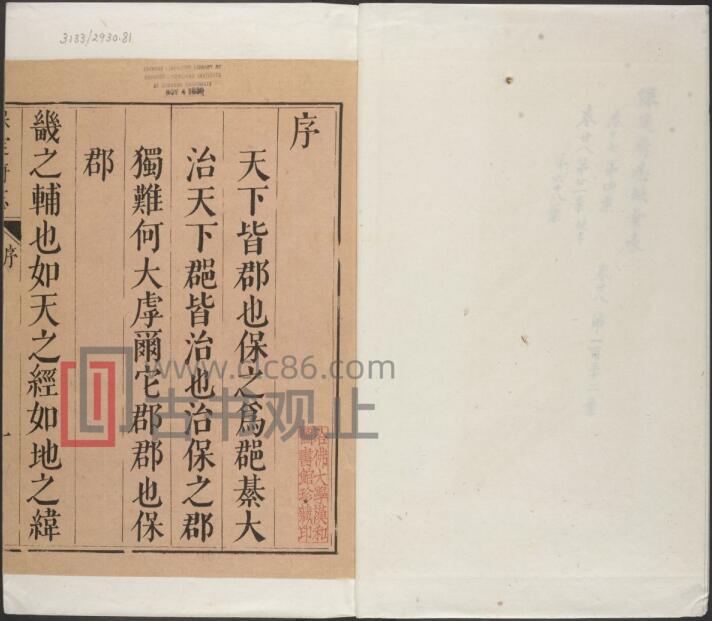 3133/2930.81
CHINESE-JAPANESE LIBRARY OF
HARVARD-YENCHING INSTITUTE
AT HARVARD UNIVERSITY
NOV 4 1930
序
天下皆郡也保之為郡綦大
治天下郡皆治也治保之郡
獨難何大虖爾它郡郡也保
郡
畿之輔也如天之經如地之緯
保定府志
序
一
哈佛大學漢和
圖書館珍藏印
www.clc86.com
古书观止